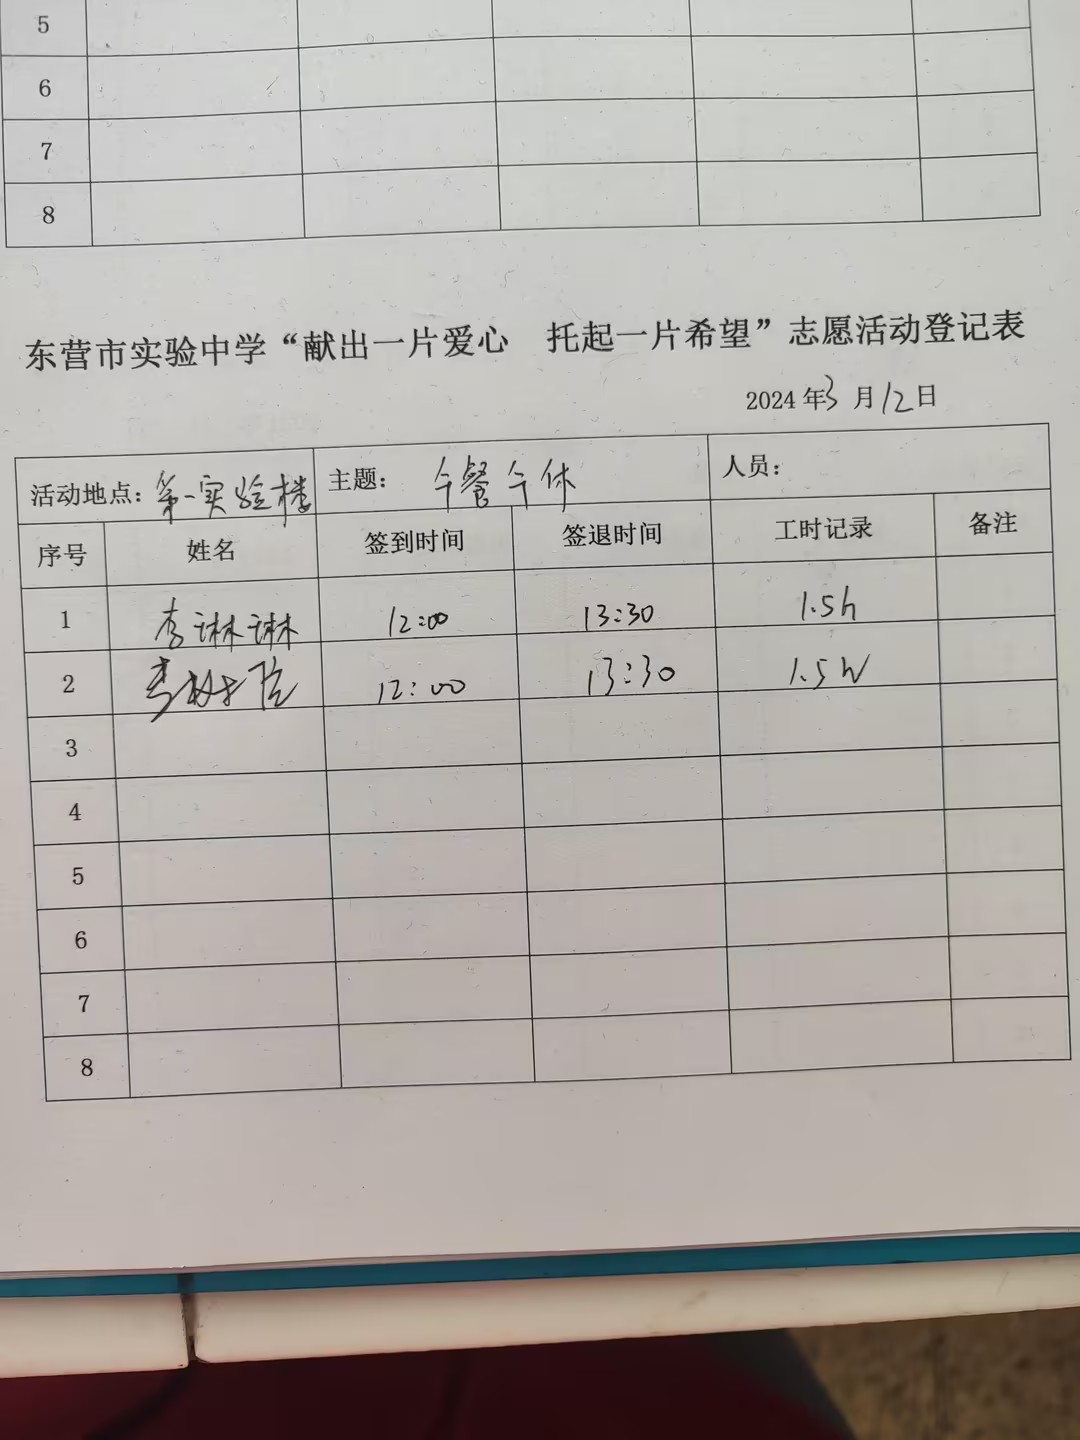 5
6
7
8
东营市实验中学“献出一片爱心 托起一片希望”志愿活动登记表
2024 年3 月12日
活动地点：第一实验楼 主题： 午餐午休 人员：
序号 姓名 签到时间 签退时间 工时记录 备注
1 李琳琳 12:00 13:30 1.5h
2 12:00 13:30 1.5h
3
4
5
6
7
8